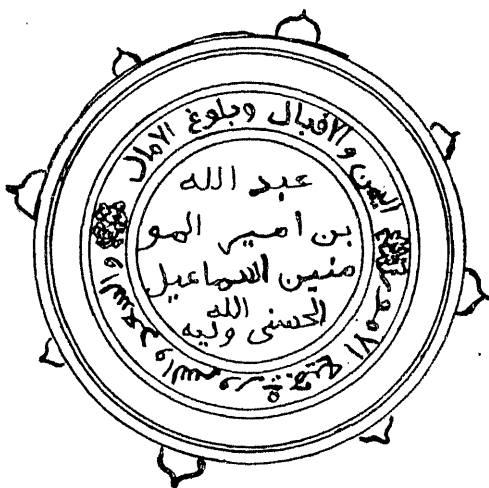 اليمن والاقبال وبلوغ الامال
والسعد والسرور
عبد الله
بن امير المو
منين اسماعيل
الله
الحسنى وليه